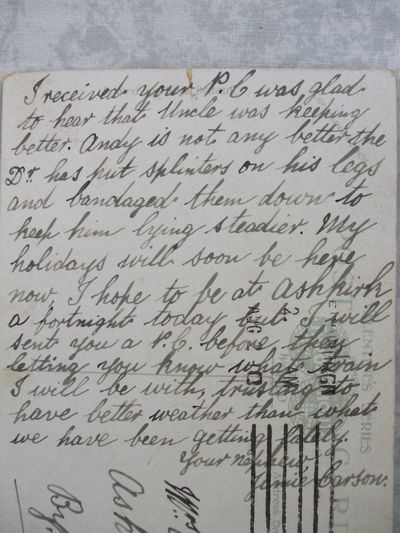 I received your P.C was glad
to hear that Uncle was keeping
better. Andy is not any better the
Dr has put splinters on his legs
and bandaged them down to
keep him lying steadier. My
holidays will soon be here
now, I hope to be at Ashkirk
a fortnight today but I will
sent you a P.C. before then
letting you know what train
I will be with, trusting to
have better weather than what
we have been getting lately.
Your nephew,
Jimie Carson.
Mrs
Ash
By